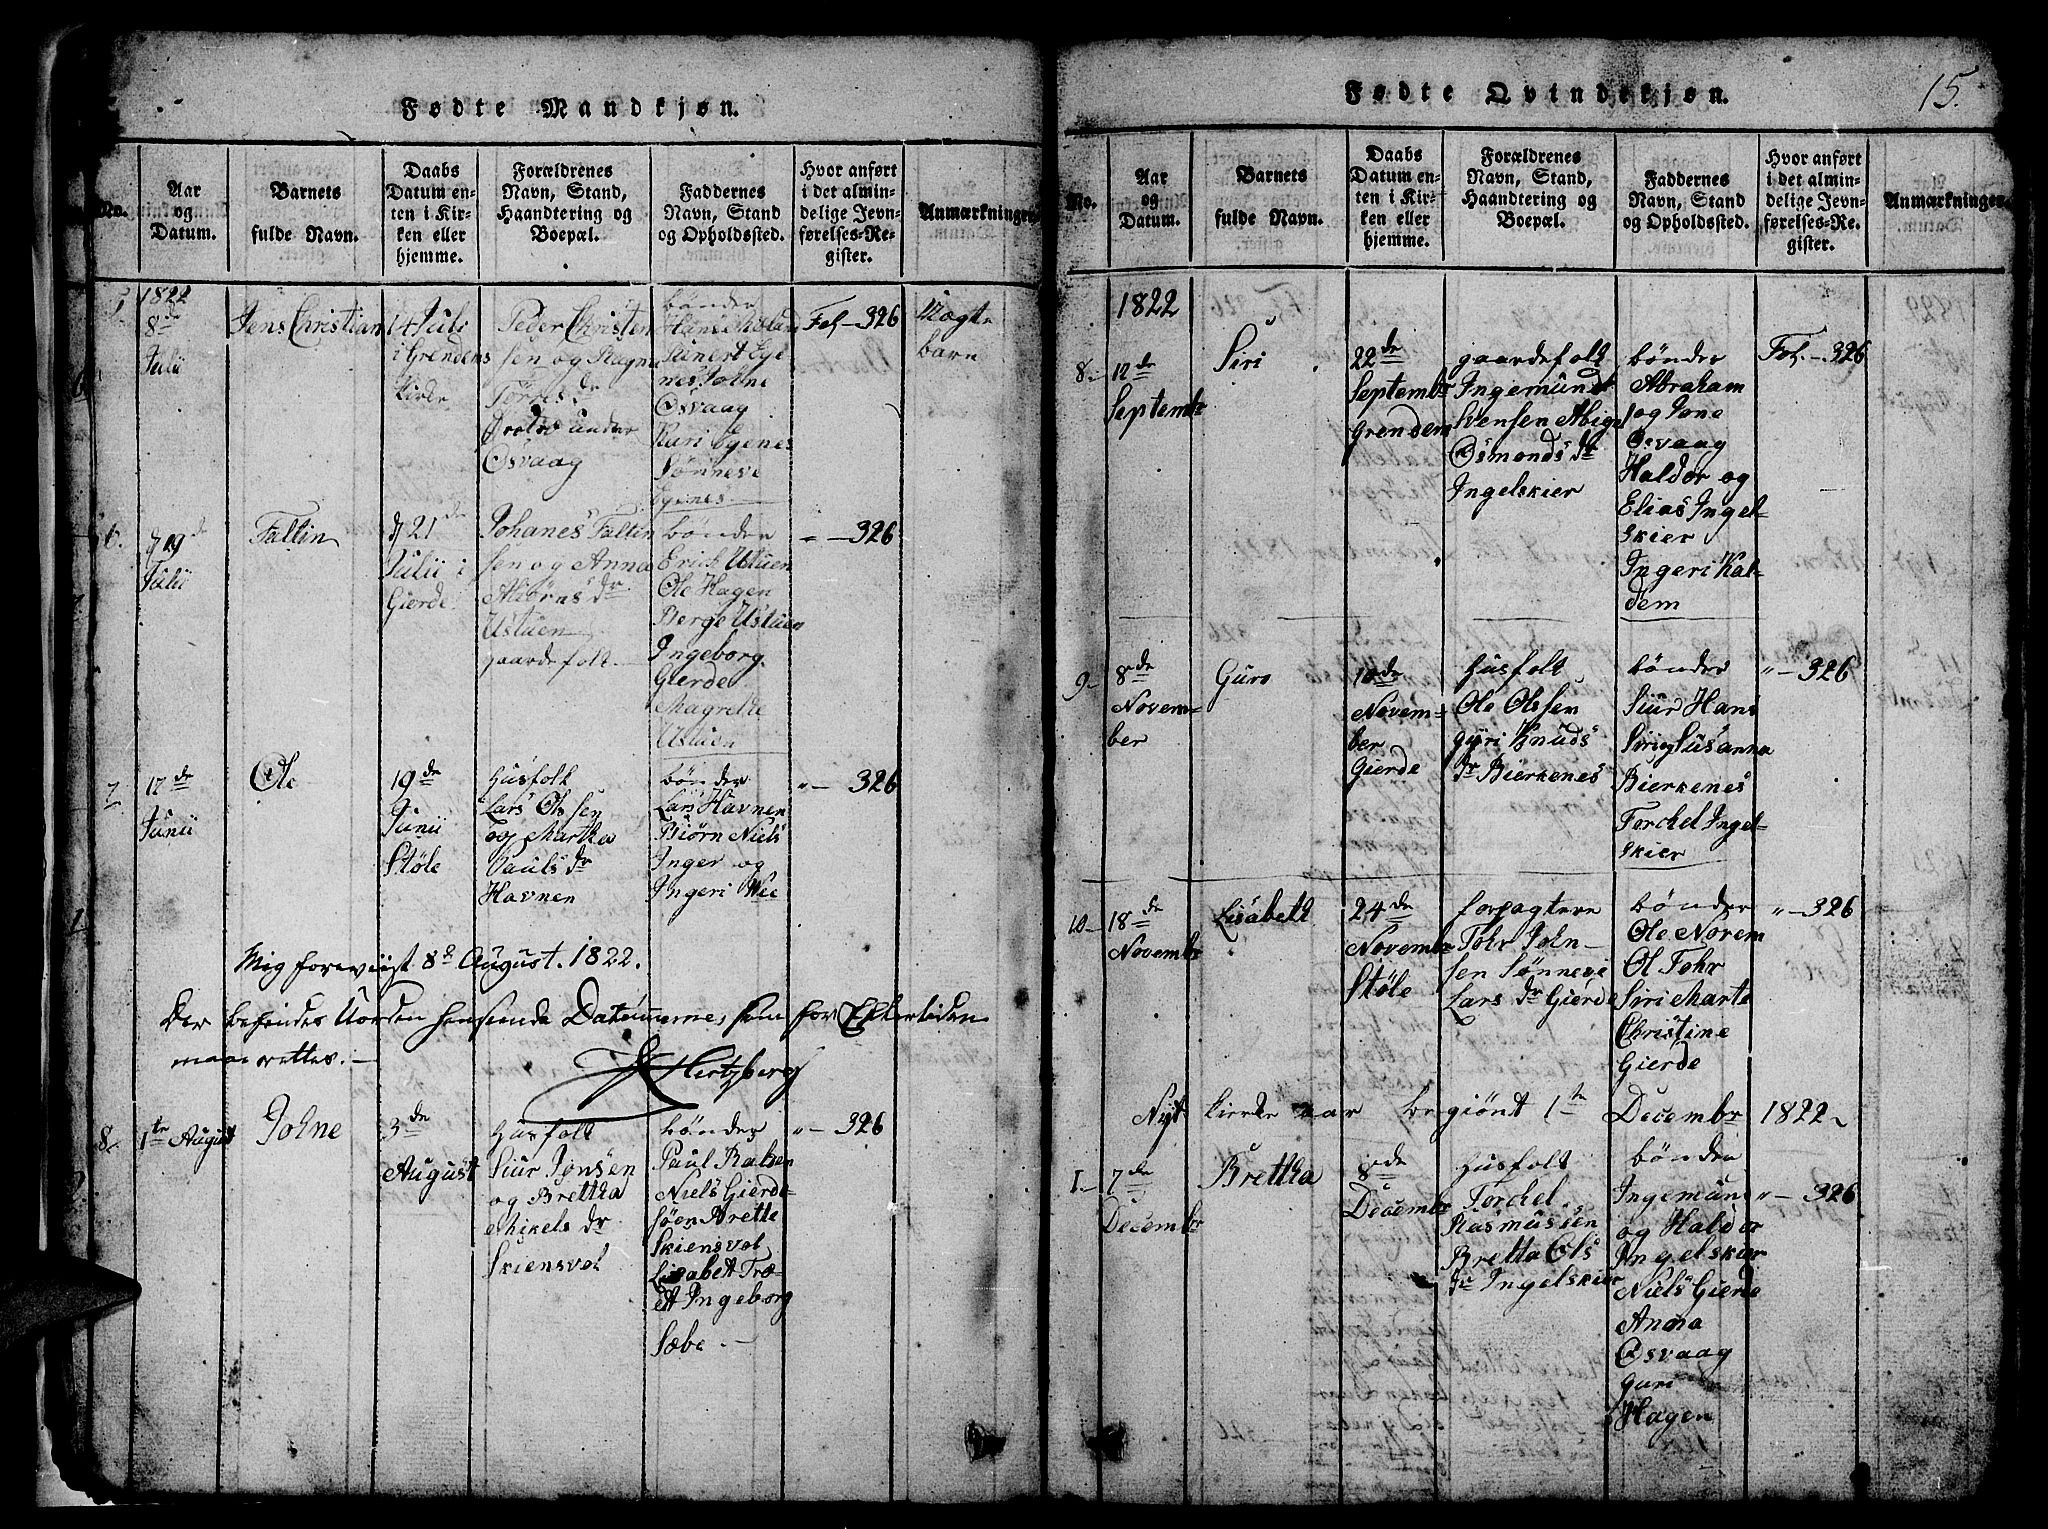 Fødte Mandkjøn.
No.
Aar
og
Datum.
Barnets
fulde Navn.
Daabs
Datum en-
ten i Kir-
ken eller
hjemme.
Forældrenes
Navn, Stand,
Haandtering og
Boepæl.
Faddernes
Navn, Stand
og Opholdssted.
Hvor anført
i det almin-
delige Jevn-
førelses-Re-
gister.
Anmærkninger.
1822
8de
Julii
Jens Christian
14 Juli
i Grendens
Kirke
Peder Christen
sen og Magna
Torres dr
under
Osvaag
bønder
Hans
Sünert Ege
nes, Johne
Osvaag
Kari Egenes
Sønneve
Egenes.
Fol - 326
Uægte
barn
6.
d 19de
Julii
Faltin
d 21de
Julii i
Gierde
Johanes Faltin
sen og Anna
Abiørns dr
Ustuen
gaardefolk.
bønder
Erick Ustuen
Ole Hagen
Berge Ustuen
Ingeborg
Gierde
Magrethe
Ustuen
" - 326
7.
17de
Junii
Ole
19de
Junii
Støle
Husfolk
Lars Olssen
og Martha
Pauls dr
Havnen
bønder
Lars Havnen
Biørn Niels
Inger og
Ingeri Wie
" - 326
Mig foreviist 8de August. 1822.
Der befindes Uorden henseende Datumerne, som for Eftertiden
maae rettes.-
Hertzberg
8.
1te August
Johne
3de
August
Husfolk
Siur Jonsen
og Brettha
Mikels dr
Skiensvol
bønder
Paul
Niels Gierde-
søen Brette
Skiensvol
Lisabet Træ-
et Ingeborg
Sæbø.-
" - 326
Fødte Qvindekjøn.
15.
No.
Aar
og
Datum.
Barnets
fulde Navn.
Daabs
Datum en-
ten i Kir-
ken eller
hjemme.
Forældrenes
Navn, Stand,
Haandtering og
Boepæl.
Faddernes
Navn, Stand
og Opholdssted.
Hvor anført
i det almin-
delige Jevn-
førelses-Re-
gister.
Anmærkninger.
1822
8.
12de
Septembr
Siri
22de
Septembr
Grendem
gaardefolk
Ingemund
Svensen Abigel
Osmonds dr
Ingelskier
bønder
Abraham
og Jone
Osvaag
Haldor og
Elias Ingel-
skier
Ingeri Kal-
dem
Fol. - 326
9-
8de
Novem-
ber
Guro
10de
Novem-
ber
Gierde
Husfolk
Ole Olssen
Gyri Knuds
dr Bierkenes
bønder
Siur Hans
Siri Susanna
Bierkenes
Torchel Ingel-
skier
" - 326
10-
18de
Novembr
Lisabett
24de
Novembr
Støle
forpagtere
Tohr John-
sen Sønneve
Lars dr Gierde
bønder
Ole Norem
Ol Tohr
Siri Marte
Christine
Gierde
" - 326
Nyt kierke aar begiønt 1te Decembr 1822
1-
7de
Decembr
Brettha
8de
Decembr
Husfolk
Torchel
Rasmusien
Bretta Ols
dr Ingelskier
bønder
Ingemun
og Haldor
Ingelskier
Niels Gierde
Anna
Osvaag
Guri
Hagen
" - 326